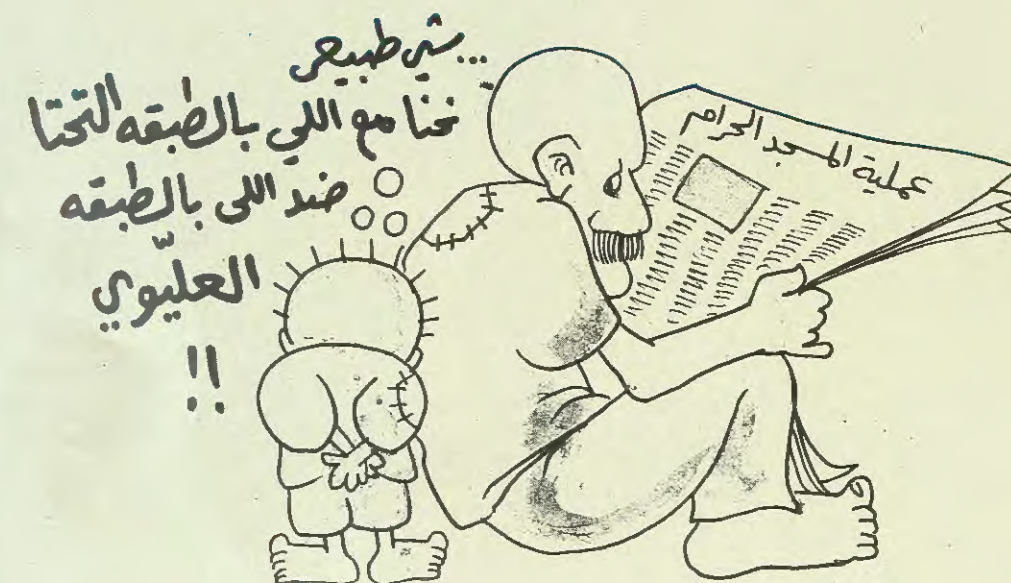 ...شي طبيعي
نحنا مع اللي بالطبقه التحتا
ضد اللي بالطبقه
العليّوي
!!
عملية المسجد الحرام